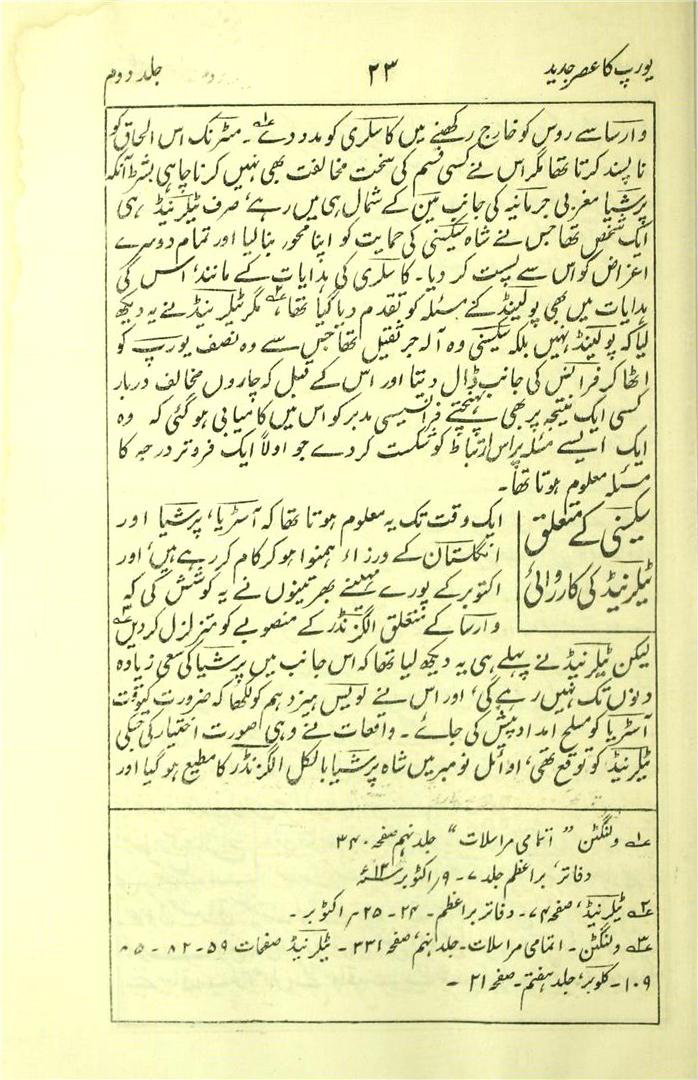 یورپ کا عصر جدید ۲۳ جلد دوم
وارسا سے روس کو خارج رکھنے میں کاسلری کو مدد دے ؎۱۔ مٹرنک اس الحاق کو
ناپسند کرتا تھا مگر اس نے کسی قسم کی سخت مخالفت بھی نہیں کرنا چاہی بشرطانکہ
پرشیا مغربی جرمانیہ کی جانب مین کے شمال ہی میں رہے، صرف ٹیلرنیڈ ہی
ایک شخص تھا جس نے شاہ سیکسنی کی حمایت کو اپنا محور بنا لیا اور تمام دوسرے
اغراض کو اس سے پست کر دیا۔ کاسلری کی ہدایات کے مانند، اس کی
ہدایات میں بھی پولینڈ کے مسئلہ کو تقدم دیا گیا تھا، ؎۲ مگر ٹیلرنیڈ نے یہ دیکھ
لیا کہ پولینڈ نہیں بلکہ سیکسنی وہ آلہ جرثقیل تھا جس سے وہ نصف یورپ کو
اٹھا کر فرانس کی جانب ڈال دیتا اور اس کے قبل کہ چاروں مخالف دربار
کسی ایک نتیجہ پر بھی پہنچتے فرانسیسی مدبر کو اس میں کامیابی ہو گئی کہ وہ
ایک ایسے مسئلہ پر اس ارتباط کو شکست کر دے جو اولاً ایک فروتر درجہ کا
مسئلہ معلوم ہوتا تھا۔
سیکسنی کے متعلق
ٹیلرنیڈ کی کارروائی
ایک وقت تک یہ معلوم ہوتا تھا کہ آسٹریا، پرشیا اور
انگلستان کے وزراء ہمنوا ہو کر کام کر رہے ہیں، اور
اکتوبر کے پورے مہینے بھر تینوں نے یہ کوشش کی کہ
وارسا کے متعلق الگزنڈر کے منصوبے کو متزلزل کر دیں ؎۳
لیکن ٹیلرنیڈ نے پہلے ہی یہ دیکھ لیا تھا کہ اس جانب میں پرشیا کی سعی زیادہ
دنوں تک نہیں رہے گی، اور اس نے لویس ہیزدہم کو لکھا کہ ضرورت کیوقت
آسٹریا کو مسلح امداد پیش کی جائے۔ واقعات نے وہی صورت اختیار کی جسکی
ٹیلرنیڈ کو توقع تھی، اوائل نومبر میں شاہ پرشیا بالکل الگزنڈر کا مطیع ہو گیا اور
؎۱ ولنگٹن "اتمامی مراسلات" جلد نہم صفحہ ۳۴۰
دفاتر، براعظم جلد ۷۔ ۹؍ اکتوبر ۱۴ء
؎۲ ٹیلرنیڈ، صفحہ ۷۴۔ دفاتر براعظم۔ ۲۴۔ ۲۵؍ اکتوبر۔
؎۳ ولنگٹن۔ اتمامی مراسلات۔ جلد نہم، صفحہ ۳۳۱۔ ٹیلرنیڈ صفحات ۵۹۔ ۸۲۔ ۸۵
۱۰۹۔ کلوبر، جلد ہفتم۔ صفحہ ۲۱۔